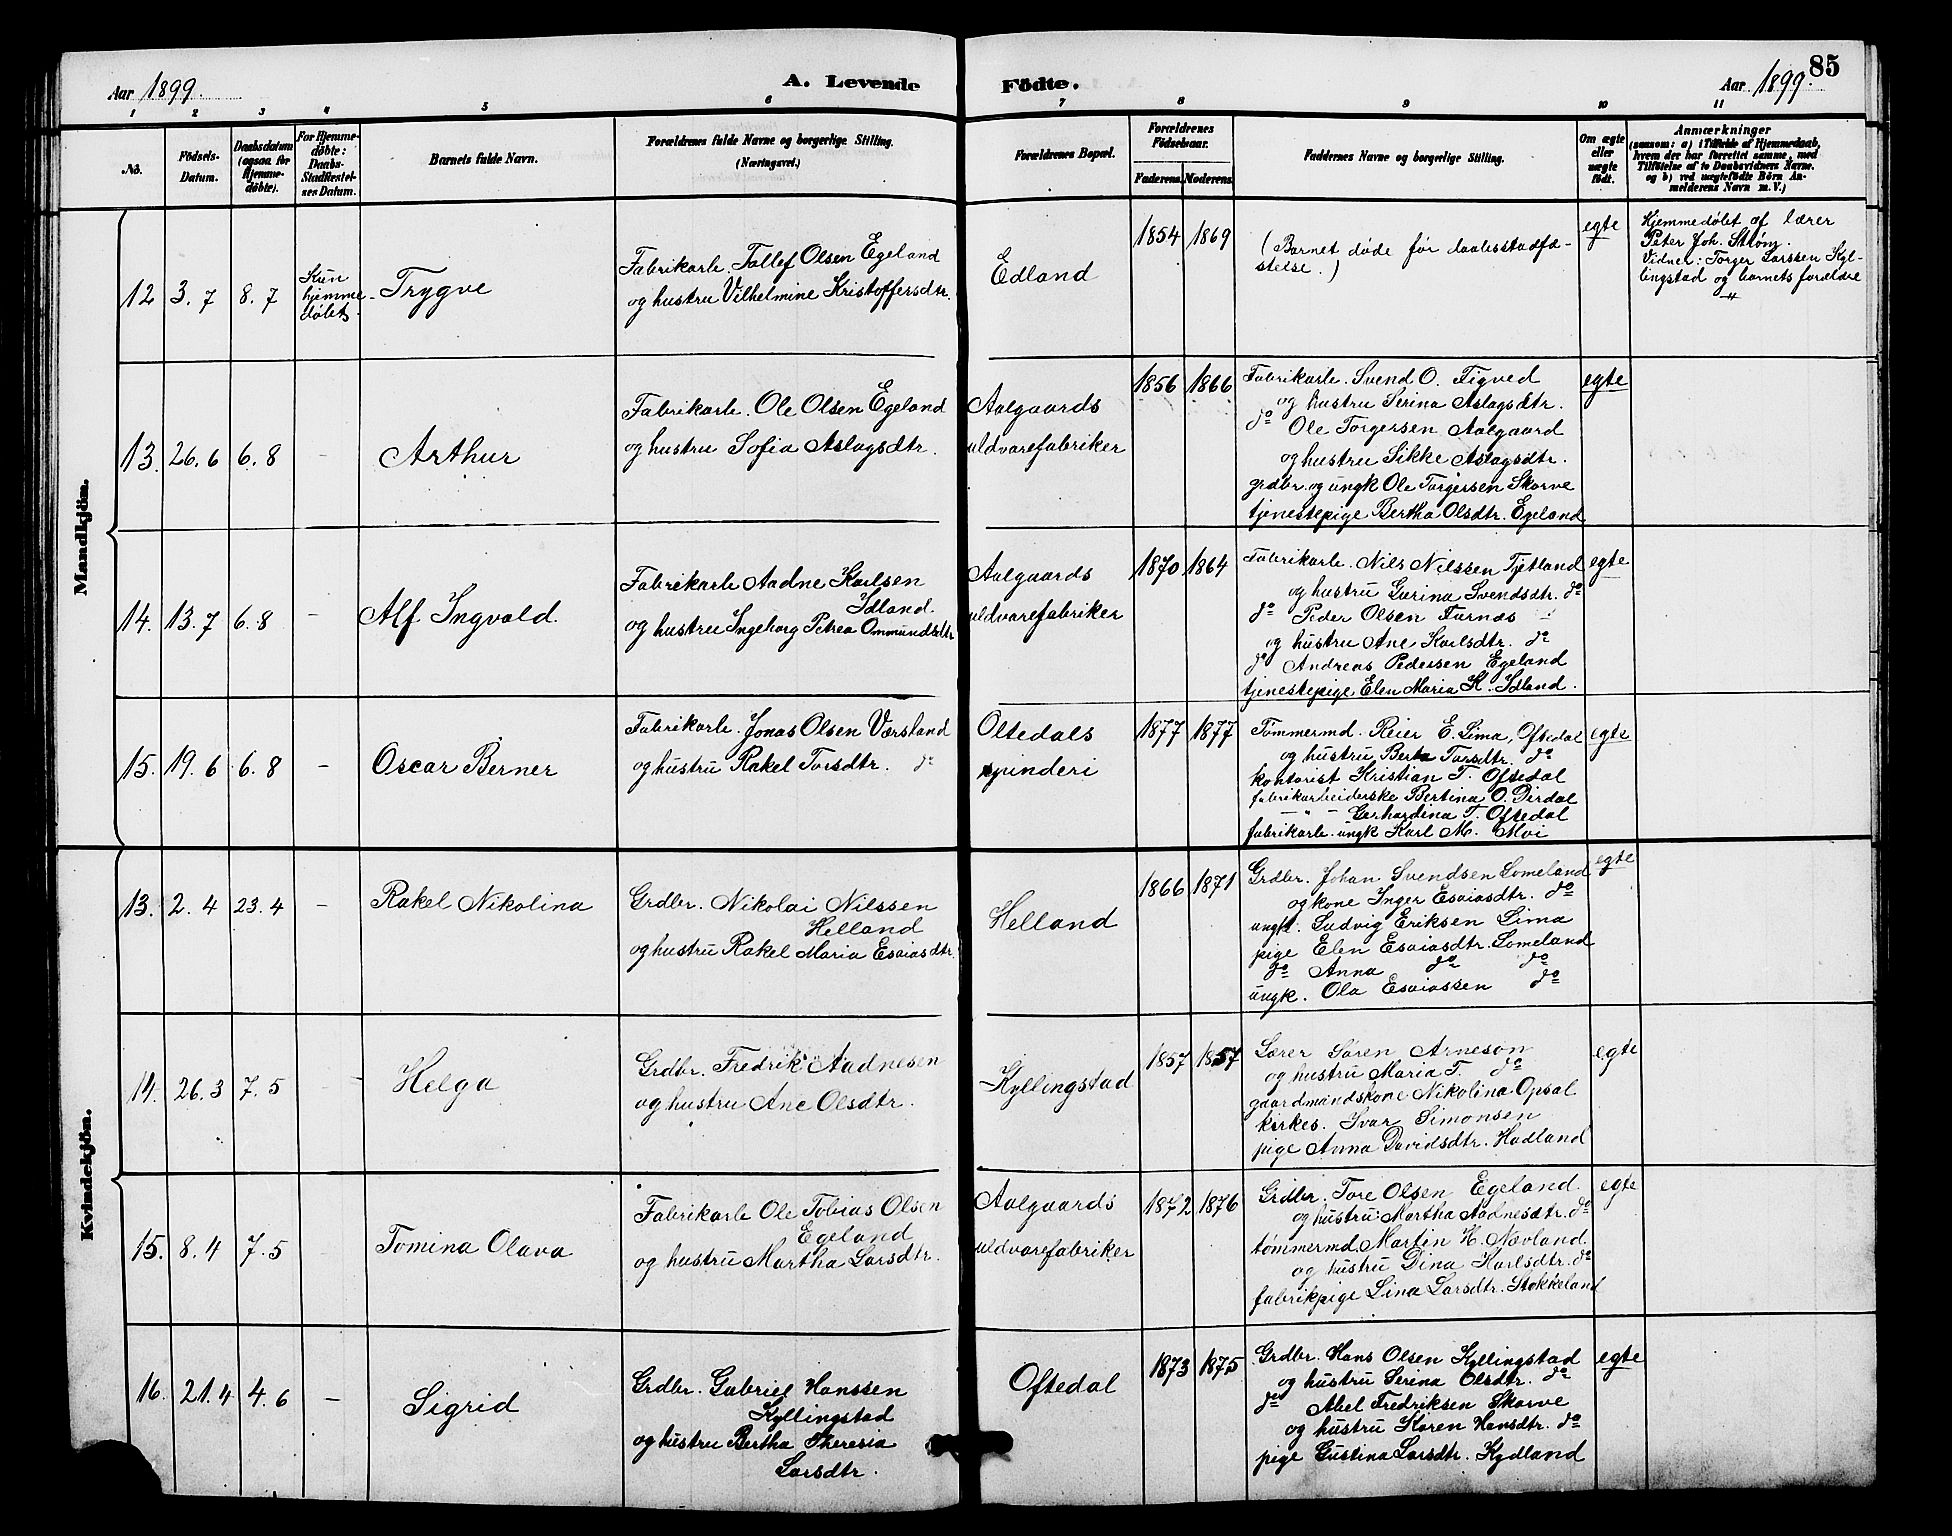 85
Aar 1899.
A. Levende Födte.
Aar 1899.
1 2 3 4 5 6 7 8 9 10 11
No.
Födsels-Datum.
Daabsdatum (ogsaa for Hjemme-döbte).
For Hjemme-döbte: Daabs-Stadfæstel-ses Datum.
Barnets fulde Navn.
Forældrenes fulde Navne og borgerlige Stilling. (Næringsvei.)
Forældrenes Bopæl.
Forældrenes Födselsaar.
Faderens. Moderens.
Faddernes Navne og borgerlige Stilling.
Om ægte eller uægte födt.
Anmærkninger
(saasom: a) i Tilfælde af Hjemmedaab,
hvem der har forrettet samme, med
Tilföielse af to Daabsvidners Navne.
og b) ved uægtefödte Börn An-
melderens Navn m. V.)
Mandkjön.
12 3.7 8.7
Kun
hjemme-
døbt.
Trygve
Fabrikarb. Tallef Olsen Egeland
og hustru Vilhelmine Kristoffersdtr.
Edland
1854 1869
(Barnet døde før daabsstadfæ-
stelse.)
egte
Hjemmedøbt af lærer
Peter Joh. Strøm.
Vidner: Torger Larssen Kyl-
lingstad og barnets forældre
13. 26.6 6.8 -
Arthur
Fabrikarb. Ole Olsen Egeland
og hustru Sofia Aslagsdtr.
Aalgaards
uldvarefabriker
1856 1866
Fabrikarb. Svend O. Figved
og hustru Serina Aslagsdtr.
do Ole Torgersen Aalgaard
og hustru Sikke Aslagsdtr.
grdbr. og ungk Ole Torgersen Skorve
tjenestepige Bertha Olsdtr. Egeland
egte
14. 13.7 6.8 -
Alf Ingvald.
Fabrikarb Aadne Karlsen
Idland.
og hustru Ingeborg Petrea Ommundsdtr
Aalgaards
uldvarefabriker
1870 1864
Fabrikarb. Nils Nilssen Tjetland
og hustru Gurina Svendsdtr. do
do Peder Olsen Furnæs
og hustru Ane Karlsdtr. do
do Andreas Pedersen Egeland
tjenestepige Elen Maria K. Idland.
egte
15. 19.6 6.8 -
Oscar Berner
Fabrikarb. Jonas Olsen Værsland
og hustru Rakel Torsdtr. do
Oltedals
spinderi
1877 1877
Tømmermd. Reier E. Lima, Oftedal
og hustru Berta Torsdtr. do
kontorist Kristian T. Oftedal
fabrikarbeiderske Bertina O. Dirdal
— " — Gerhardina T. Oftedal
fabrikarb. ungk Karl M. Moi
egte
Kvindekjön.
13. 2.4 23.4 -
Rakel Nikolina
Grdbr. Nikolai Nilssen
Helland
og hustru Rakel Maria Esaiasdtr.
Helland
1866 1871
Grdbr. Johan Svendsen Lomeland
og kone Inger Esaiasdtr. do
ungk. Ludvig Eriksen Lima
pige Elen Esaiasdtr. Lomeland
do Anna do do
ungk. Ola Esaiassen do
egte
14. 26.3 7.5 -
Helga
Grdbr. Fredrik Aadnesen
og hustru Ane Olsdtr.
Kyllingstad
1857 1857
Lærer Søren Arneson
og hustru Maria T. do
gaardmandskone Nikolina Opsal
kirkes. Ivar Simonsen
pige Anna Davidsdtr. Hadland
egte
15. 8.4 7.5
Tomina Olava
Fabrikarb Ole Tobias Olsen
Egeland
og hustru Martha Larsdtr.
Aalgaards
uldvarefabriker
1872 1876
Grdbr. Tore Olsen Egeland.
og hustru Martha Aadnesdtr. do
tømmermd. Martin H. Nævland.
og hustru Dina Karlsdtr. do
fabrikpige Lina Larsdtr. Stokkeland
egte
16. 21.4 4.6 -
Sigrid
Grdbr. Gabriel Hanssen
Kyllingstad
og hustru Bertha Theresia
Larsdtr.
Oftedal
1873 1875
Grdbr. Hans Olsen Kyllingstad
og hustru Serina Olsdtr. do
do Abel Fredriksen Skorve
og hustru Karen Hansdtr. do
pige Gustina Larsdtr. Kydland
egte